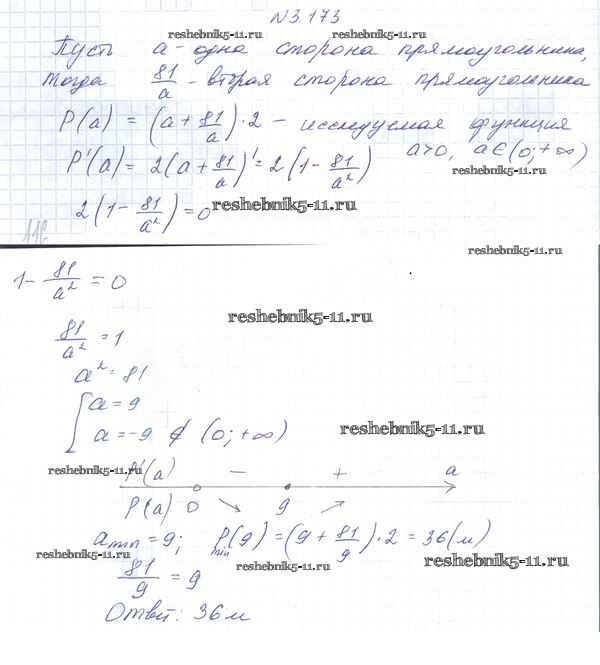 №3.173
reshebnik5-11.ru
Пусть a - одна сторона прямоугольника,
тогда 81/a - вторая сторона прямоугольника
P(a) = (a + 81/a)·2 - исследуемая функция
P'(a) = 2(a + 81/a)' = 2(1 - 81/a²) a>0, a∈(0;+∞)
reshebnik5-11.ru
2(1 - 81/a²) = 0
reshebnik5-11.ru
reshebnik5-11.ru
1 - 81/a² = 0
reshebnik5-11.ru
81/a² = 1
a² = 81
[a = 9
a = -9 ∉ (0;+∞)
reshebnik5-11.ru
reshebnik5-11.ru
P'(a) - + a
P(a) 0 ↘ 9 ↗
a min = 9; P min (9) = (9 + 81/9)·2 = 36(м)
reshebnik5-11.ru
reshebnik5-11.ru
reshebnik5-11.ru
81/9 = 9
Ответ: 36м